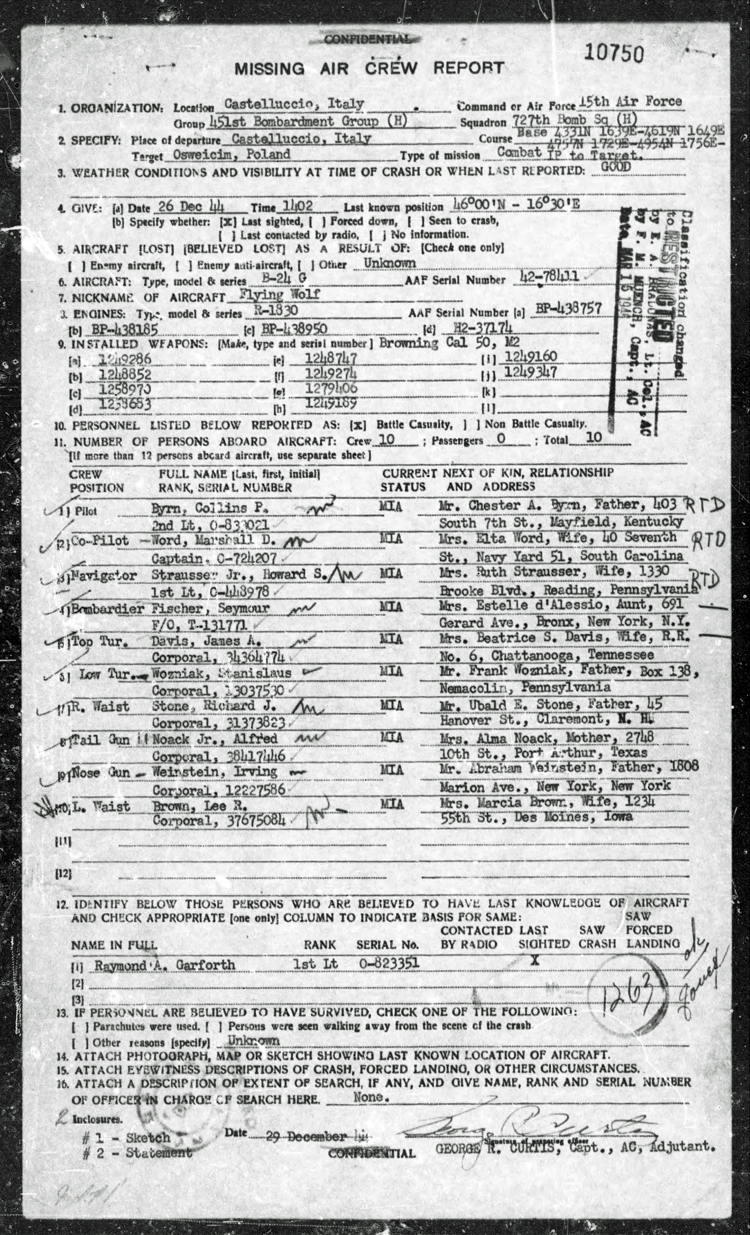 CONFIDENTIAL
10750
MISSING AIR CREW REPORT
1. ORGANIZATION: Location Castelluccio, Italy . Command or Air Force 15th Air Force
Group 451st Bombardment Group (H) Squadron 727th Bomb Sq (H)
2. SPECIFY: Place of departure Castelluccio, Italy Course Base 4331N 1639E-4619N 1649E
4757N 1729E-4954N 1756E-
Target Osweicim, Poland Type of mission Combat IP to Target.
3. WEATHER CONDITIONS AND VISIBILITY AT TIME OF CRASH OR WHEN LAST REPORTED: GOOD
4. GIVE: [a] Date 26 Dec 44 Time 1402 Last known position 46°00'N - 16°30'E
[b] Specify whether: [X] Last sighted, [ ] Forced down, [ ] Seen to crash,
[ ] Last contacted by radio, [ ] No information.
5. AIRCRAFT [LOST] [BELIEVED LOST] AS A RESULT OF: [Check one only]
[ ] Enemy aircraft, [ ] Enemy anti-aircraft, [ ] Other Unknown
6. AIRCRAFT: Type, model & series B-24 G AAF Serial Number 42-78411
7. NICKNAME OF AIRCRAFT Flying Wolf
8. ENGINES: Type, model & series R-1830 AAF Serial Number [a] BP-438757
[b] BP-438185 [c] BP-438950 [d] H2-37174
9. INSTALLED WEAPONS: [Make, type and serial number] Browning Cal 50, M2
[a] 1249286 [e] 1248747 [i] 1249160
[b] 1248852 [f] 1249274 [j] 1249347
[c] 1258970 [g] 1279406 [k]
[d] 1258683 [h] 1249189 [l]
Classification changed
to RESTRICTED
by E. A. Lt. Col., AC
by F. M. MUENCH, Capt., AC
Date MAR 15 1946
10. PERSONNEL LISTED BELOW REPORTED AS: [X] Battle Casualty, [ ] Non Battle Casualty.
11. NUMBER OF PERSONS ABOARD AIRCRAFT: Crew 10 ; Passengers 0 ; Total 10
[If more than 12 persons aboard aircraft, use separate sheet]
CREW FULL NAME [Last, first, initial] CURRENT NEXT OF KIN, RELATIONSHIP
POSITION RANK, SERIAL NUMBER STATUS AND ADDRESS
[1] Pilot Byrn, Collins P. MIA Mr. Chester A. Byrn, Father, 403 RTD
2nd Lt, O-833021 South 7th St., Mayfield, Kentucky
[2] Co-Pilot Word, Marshall D. MIA Mrs. Elta Word, Wife, 40 Seventh RTD
Captain, O-724207 St., Navy Yard 51, South Carolina
[3] Navigator Strausser Jr., Howard S. MIA Mrs. Ruth Strausser, Wife, 1330 RTD
1st Lt, O-448978 Brooke Blvd., Reading, Pennsylvania
[4] Bombardier Fischer, Seymour MIA Mrs. Estelle d'Alessio, Aunt, 691
F/O, T-131771 Gerard Ave., Bronx, New York, N.Y.
[5] Top Tur. Davis, James A. MIA Mrs. Beatrice S. Davis, Wife, R.R.
Corporal, 34364774 No. 6, Chattanooga, Tennessee
[6] Low Tur. Wozniak, Stanislaus MIA Mr. Frank Wozniak, Father, Box 138,
Corporal, 13037530 Nemacolin, Pennsylvania
[7] R. Waist Stone, Richard J. MIA Mr. Ubald E. Stone, Father, 45
Corporal, 31373823 Hanover St., Claremont, N. H.
[8] Tail Gun Noack Jr., Alfred MIA Mrs. Alma Noack, Mother, 2748
Corporal, 38417446 10th St., Port Arthur, Texas
[9] Nose Gun Weinstein, Irving MIA Mr. Abraham Weinstein, Father, 1808
Corporal, 12227586 Marion Ave., New York, New York
[10] L. Waist Brown, Lee R. MIA Mrs. Marcia Brown, Wife, 1234
Corporal, 37675084 55th St., Des Moines, Iowa
[11]
[12]
12. IDENTIFY BELOW THOSE PERSONS WHO ARE BELIEVED TO HAVE LAST KNOWLEDGE OF AIRCRAFT
AND CHECK APPROPRIATE [one only] COLUMN TO INDICATE BASIS FOR SAME: SAW
CONTACTED LAST SAW FORCED
NAME IN FULL RANK SERIAL No. BY RADIO SIGHTED CRASH LANDING
[1] Raymond A. Garforth 1st Lt O-823351 X
[2]
[3]
1263
ok
13. IF PERSONNEL ARE BELIEVED TO HAVE SURVIVED, CHECK ONE OF THE FOLLOWING:
[ ] Parachutes were used. [ ] Persons were seen walking away from the scene of the crash.
[ ] Other reasons [specify] Unknown
14. ATTACH PHOTOGRAPH, MAP OR SKETCH SHOWING LAST KNOWN LOCATION OF AIRCRAFT.
15. ATTACH EYEWITNESS DESCRIPTIONS OF CRASH, FORCED LANDING, OR OTHER CIRCUMSTANCES.
16. ATTACH A DESCRIPTION OF EXTENT OF SEARCH, IF ANY, AND GIVE NAME, RANK AND SERIAL NUMBER
OF OFFICER IN CHARGE OF SEARCH HERE. None.
2 Inclosures.
# 1 - Sketch Date 29 December 44 George R. Curtis
Signature of preparing officer
# 2 - Statement CONFIDENTIAL GEORGE R. CURTIS, Capt., AC, Adjutant.